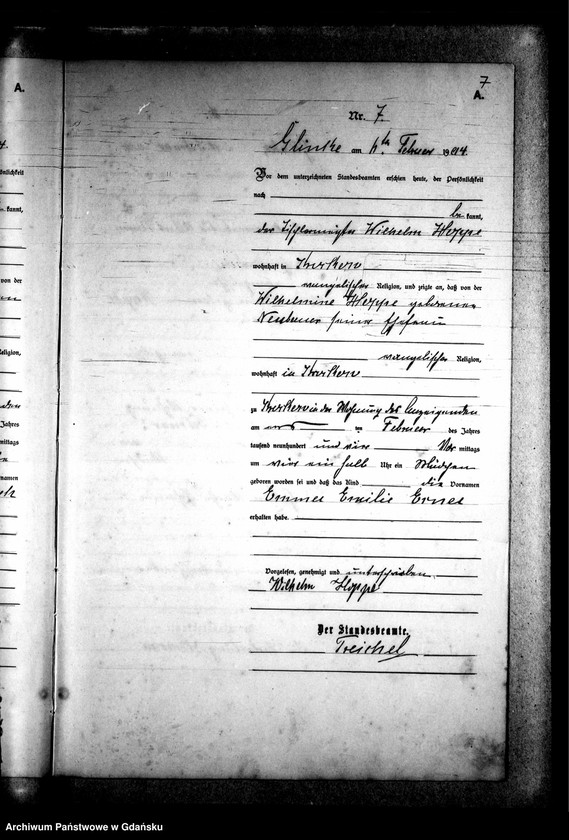 A.
7
A.
Nr. 7.
Glinke am ten Februar 1904.
Vor dem unterzeichneten Standesbeamten erschien heute, der Persönlichkeit
nach
be kannt,
der Tischlermeister Wilhelm Hoppe
wohnhaft in
evangelischer Religion, und zeigte an, daß von der
Wilhelmine Hoppe geborenen
Neubauer seiner Ehefrau
evangelischer Religion,
wohnhaft in
zu in der Wohnung des Anzeigenden
am ten Februar des Jahres
tausend neunhundert und vier Vor mittags
um vier ein halb Uhr ein Mädchen
geboren worden sei und daß das Kind die Vornamen
Emma Emilie Erna
erhalten habe.
Vorgelesen, genehmigt und unterschrieben.
Wilhelm Hoppe
Der Standesbeamte.
Treichel
Archiwum Państwowe w Gdańsku